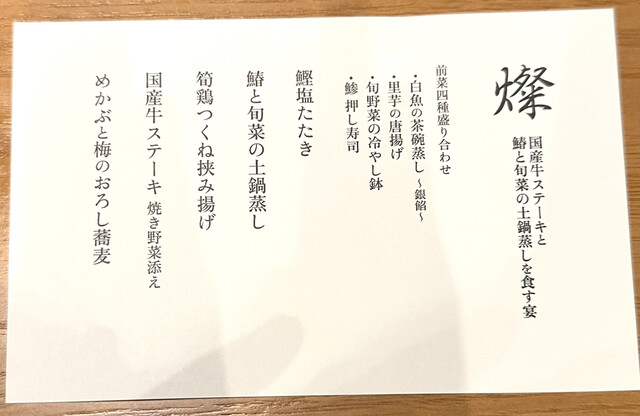 燦
国産牛ステーキと
鰆と旬菜の土鍋蒸しを食す宴
前菜四種盛り合わせ
・白魚の茶碗蒸し〜銀餡〜
・里芋の唐揚げ
・旬野菜の冷やし鉢
・鯵 押し寿司
鰹塩たたき
鰆と旬菜の土鍋蒸し
筍鶏つくね挟み揚げ
国産牛ステーキ 焼き野菜添え
めかぶと梅のおろし蕎麦